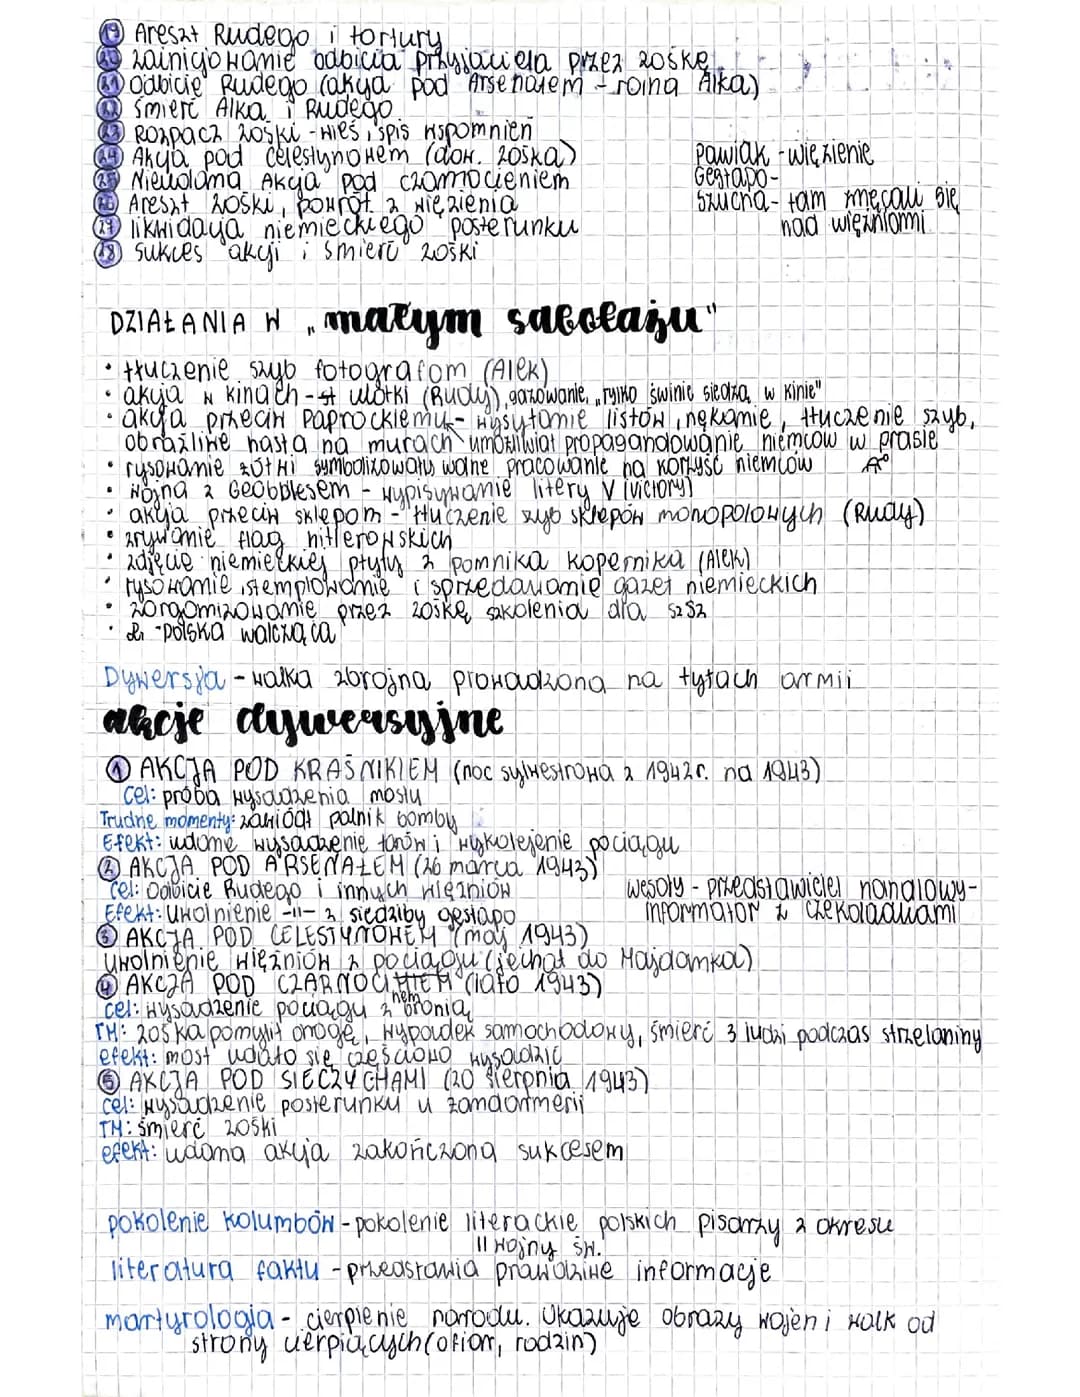 19 Areszt Rudego i tortury
20 zainicjowanie odbicia przyjaciela przez Zośkę
21 Odbicie Rudego (akcja pod Arsenałem - roina Alka)
22 śmierć Alka i Rudego
23 Rozpacz Zośki - wieś, spis wspomnień
24 Akcja pod Celestynowem (dow. Zośka)
25 Nieudolna Akcja pod Czarnocieniem
26 Areszt Zośki, powrót z więzienia
27 likwidacja niemieckiego posterunku
28 sukces akcji i śmierć Zośki
Pawiak - więzienie
Gestapo-
Szucha - tam męczali się
nad więźniami
DZIAŁANIA W „małym sabotażu"
• tłuczenie szyb fotografom (Alek)
• akcja w kinach - ulotki (Rudy), gazowanie, „tylko świnie siedzą w kinie"
• akcja przeciw Paprockiemu - wysyłanie listów, nękanie, tłuczenie szyb,
obraźliwe hasła na murach umożliwiał propagandowanie niemców w prasie
• rysowanie żółwi symbolizowały wolne pracowanie na korzyść niemców
• wojna z Geobblesem - wypisywanie litery V (victory)
• akcja przeciw sklepom - tłuczenie szyb sklepów monopolowych (Rudy)
• zrywanie flag hitlerowskich
• zdjęcie niemieckiej płyty z pomnika kopernika (Alek)
• rysowanie, stemplowanie i sprzedawanie gazet niemieckich
• zorganizowanie przez Zośkę szkolenia dla SzSz
• - polska walcząca
Dywersja - walka zbrojna prowadzona na tyłach armii
akcje dywersyjne
1 AKCJA POD KRAŚNIKIEM (noc sylwestrowa z 1942r. na 1943)
Cel: próba wysadzenia mostu
Trudne momenty: zawiódł palnik bomby
Efekt: udane wysadzenie torów i wykolejenie pociągu
2 AKCJA POD ARSENAŁEM (26 marca 1943)
Cel: Odbicie Rudego i innych więźniów
Efekt: Uwolnienie -||- z siedziby gestapo
wesoły - przedstawiciel nandlowy-
informator z czekoladkami
3 AKCJA POD CELESTYNOWEM (maj 1943)
Uwolnienie więźniów z pociągu (jechał do Majdanka)
4 AKCJA POD CZARNOCINEM (lato 1943)
nem
cel: Wysadzenie pociągu z bronią
TM: Zośka pomylił drogę, wypadek samochodowy, śmierć 3 ludzi podczas strzelaniny
efekt: most udało się częściowo wysadzić
5 AKCJA POD SIECZYCHAMI (20 sierpnia 1943)
cel: Wysadzenie posterunku u żandarmerii
TM: śmierć Zośki
efekt: udana akcja zakończona sukcesem
pokolenie kolumbów - pokolenie literackie polskich pisarzy z okresu
II wojny św.
literatura faktu - przedstawia prawdziwe informacje
martyrologia - cierpienie narrodu. Ukazuje obrazy wojen i walk od
strony cierpiących (ofiar, rodzin)